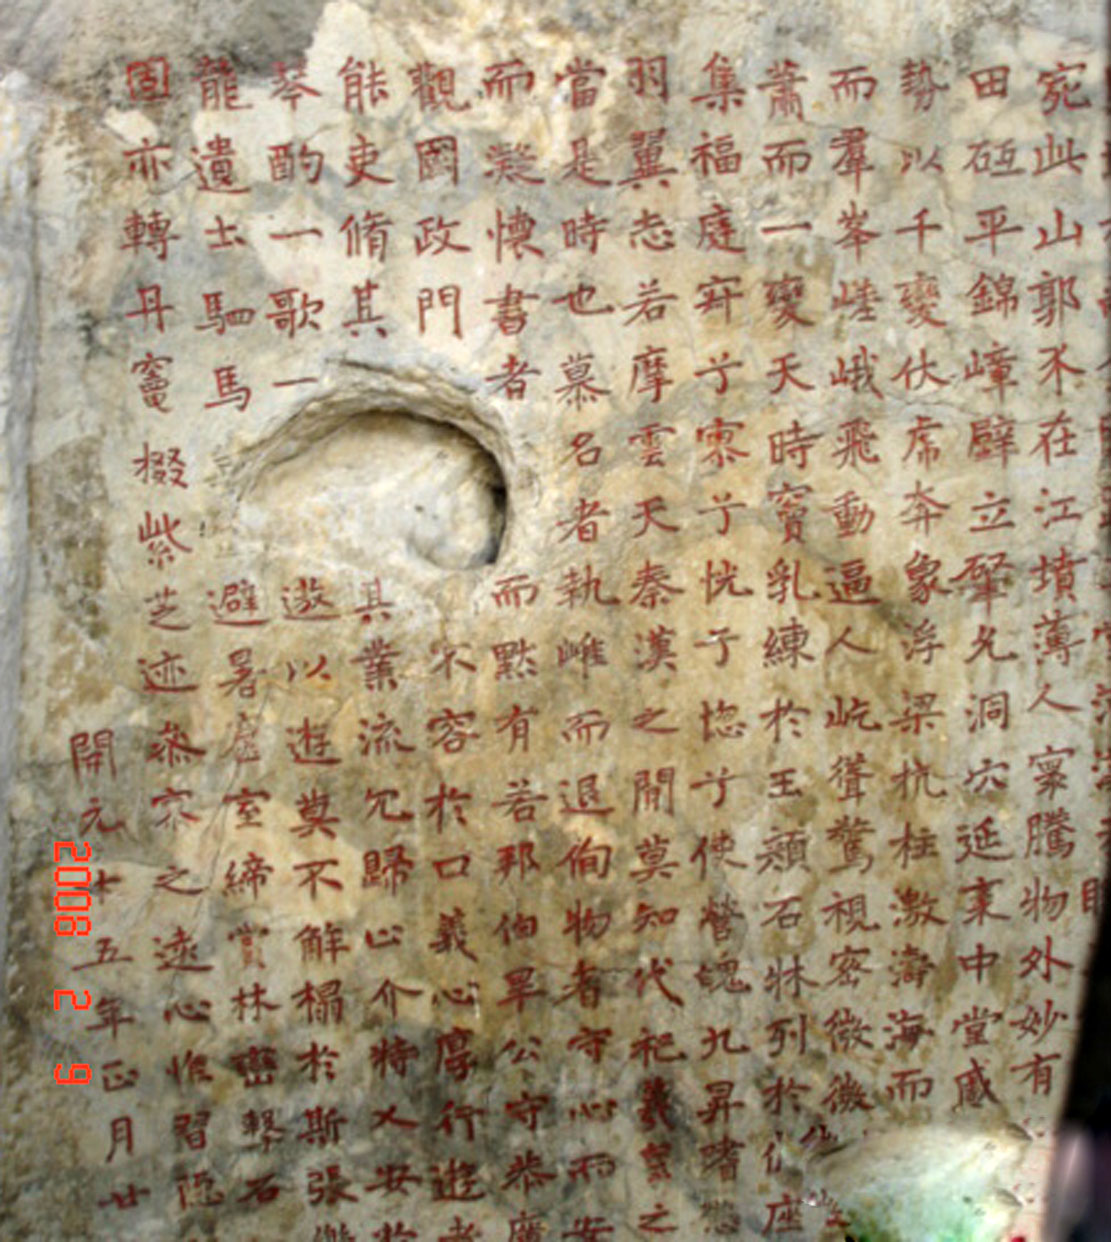 宛此山郭不在江墳薄人寰騰物外妙有
田砥平錦嶂壁立肇允洞穴延裏中堂感
勢以千變伏席奔象浮梁杭柱激濤海而
而羣峯嵯峨飛動逼人屹聳驚視密微微
蕭而一變天時竇乳練於玉顏石牀列於仙座
集福庭弈兮寥兮恍兮惚兮使營魂九昇嗜慾
羽翼志若摩雲天秦漢之閒莫知代祀義玄之
當是時也慕名者執雌而退徇物者守心而安
而凝懷書者而默有若邦伯畢公守恭廣
觀國政門不容於口義心厚行遊者
能吏脩其其業流冗歸心介特乂安
琴酌一歌一遨以遊莫不解榻於斯張
龍遺士駟馬避暑虛室締賞林巒繫石
固亦轉丹竈掇紫芝迹叅寥之遠心惟習隱
開元十五年正月廿
2008 2 9